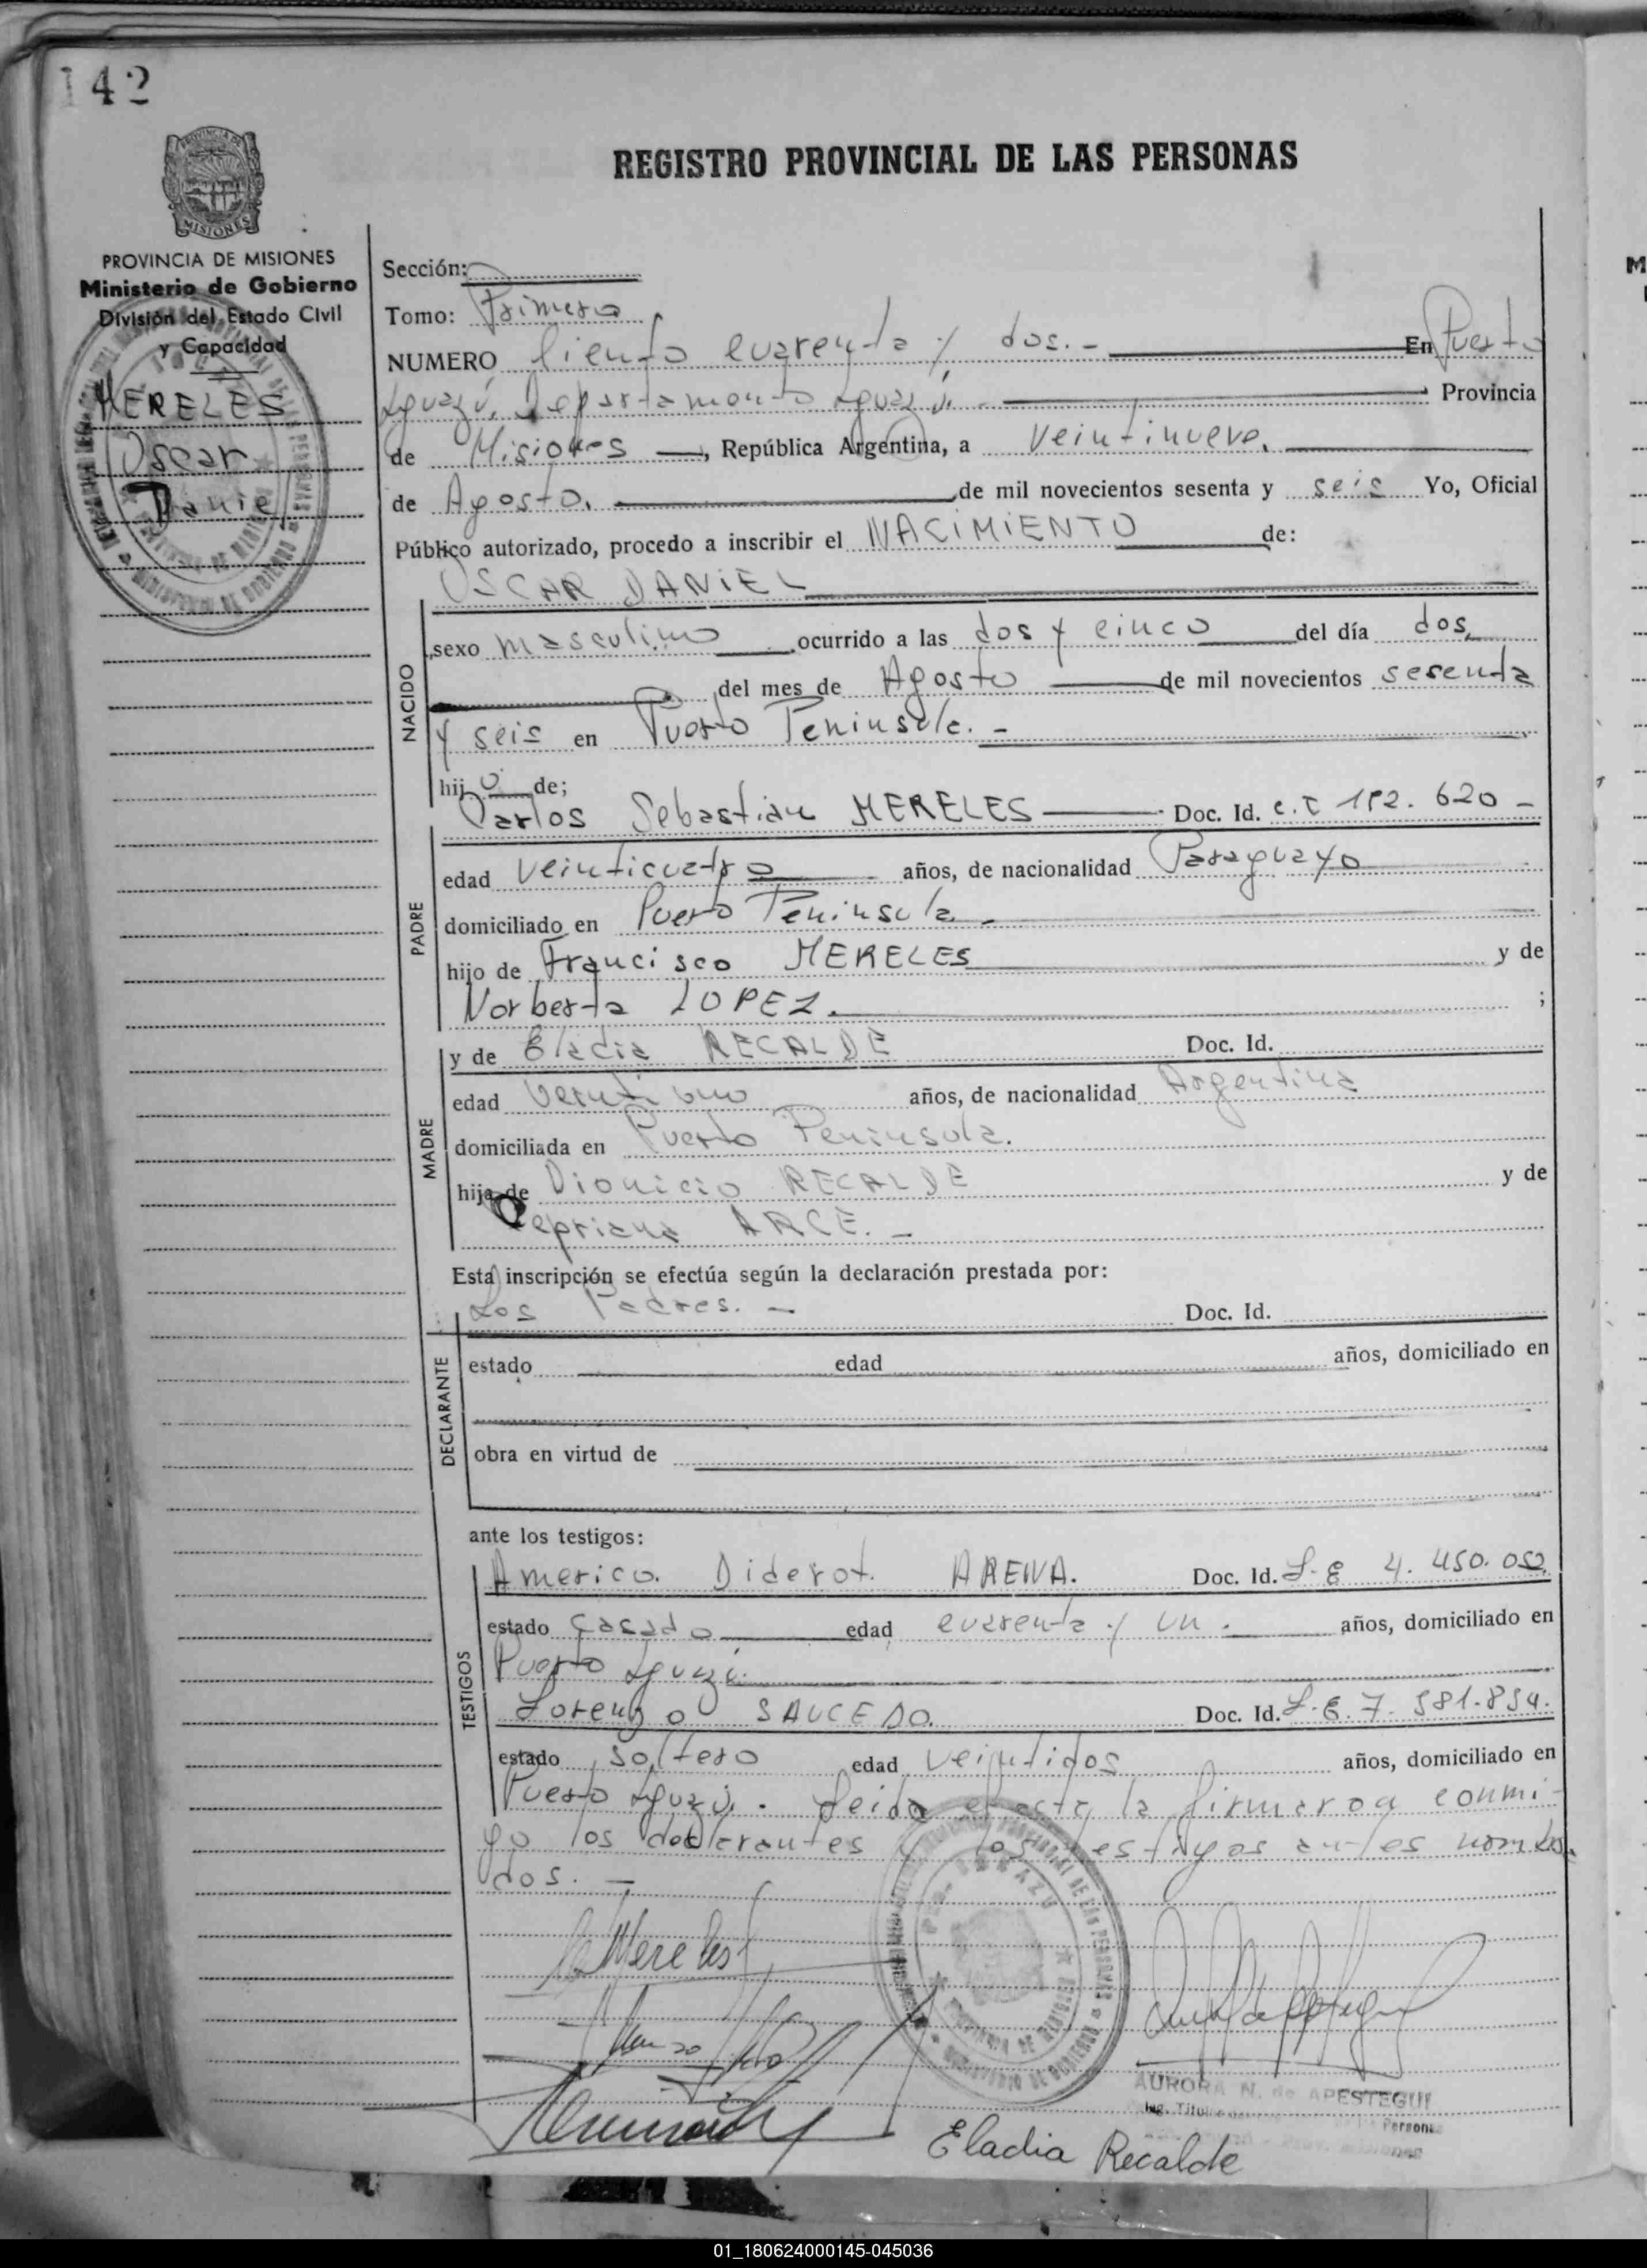 142
REGISTRO PROVINCIAL DE LAS PERSONAS
PROVINCIA DE
MISIONES
PROVINCIA DE MISIONES
Ministerio de Gobierno
División del Estado Civil
y Capacidad
MERELES
Oscar
Daniel
Sección:
Tomo: Primero
NUMERO Ciento cuarenta y dos.- En Puerto
Iguazú, Departamento Iguazú.- Provincia
de Misiones, República Argentina, a veintinueve,
de Agosto, de mil novecientos sesenta y seis Yo, Oficial
Público autorizado, procedo a inscribir el NACIMIENTO de:
OSCAR DANIEL
NACIDO
sexo masculino ocurrido a las dos y cinco del día dos,
del mes de Agosto de mil novecientos sesenta
y seis en Puerto Peninsula.-
hijo de;
PADRE
Carlos Sebastián MERELES Doc. Id. C.I 192.620 -
edad veinticuatro años, de nacionalidad Paraguayo
domiciliado en Puerto Peninsula.-
hijo de Francisco MERELES y de
Norberta LOPEZ. ;
MADRE
y de Eladia RECALDE Doc. Id.
edad Veintiuno años, de nacionalidad Argentina
domiciliada en Puerto Peninsula.
hija de Dionicio RECALDE y de
Cepriana ARCE.-
Esta inscripción se efectúa según la declaración prestada por:
Los Padres.- Doc. Id.
DECLARANTE
estado edad años, domiciliado en
obra en virtud de
ante los testigos:
TESTIGOS
Americo. Diderot. ARENA. Doc. Id. L.E 4.450.052
estado Casado edad cuarenta y un. años, domiciliado en
Puerto Iguazú.
Lorenzo SAUCEDO. Doc. Id. L.E. 7.581.834.
estado soltero edad veintidos años, domiciliado en
Puerto Iguazú. Leida el acta la firmaron conmi-
go los declarantes y los testigos antes nombra
dos.-
Mereles
AURORA N. de APESTEGUI
Eladia Recalde
01_180624000145-045036